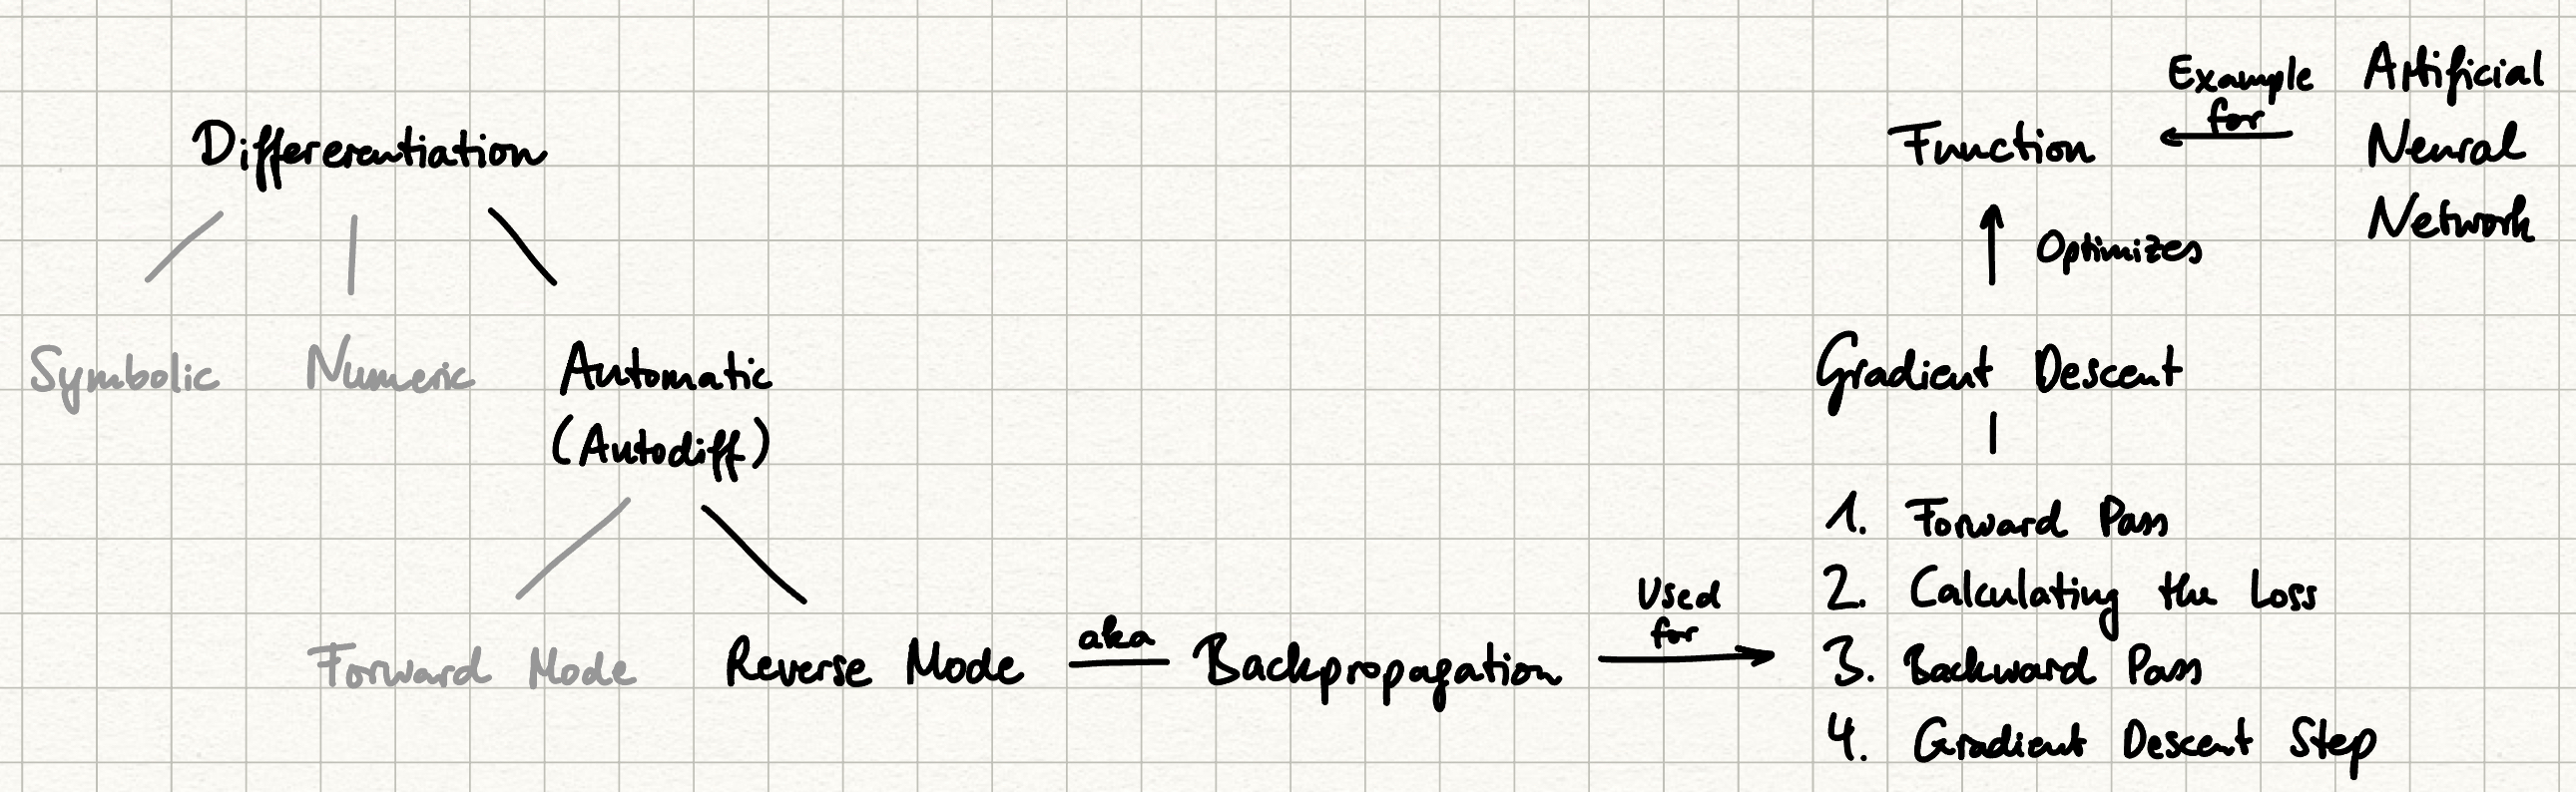 Differerentiation
Symbolic
Numeric
Automatic
(Autodiff)
Forward Mode
Reverse Mode
aka
Backpropagation
Used
for
Function
Example
for
Artificial
Neural
Network
Optimizes
Gradient Descent
1. Forward Pass
2. Calculating the Loss
3. Backward Pass
4. Gradient Descent Step